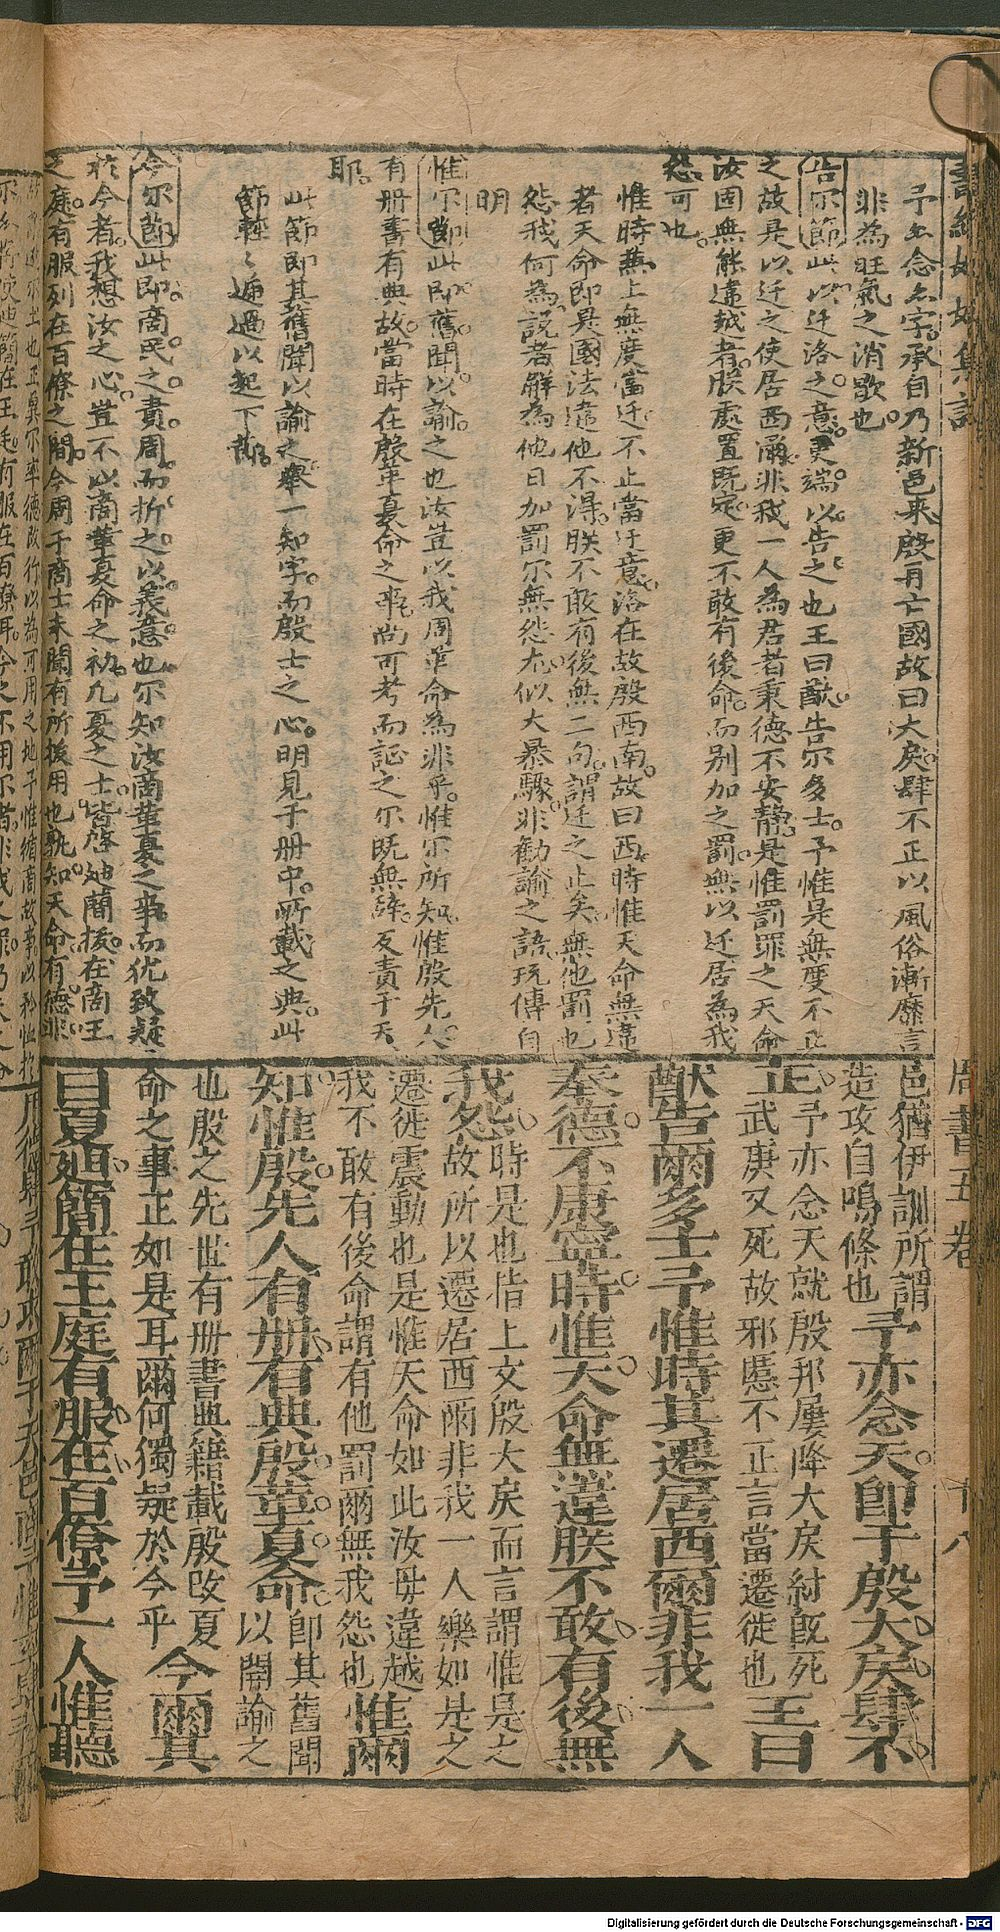 予亦念念字承自乃新邑來殷再亡國故曰大戾肆不正以風俗漸靡言
非為旺氣之消歇也
告尔節此以迁洛之意更端以告之也王曰猷告尔多士予惟是無度不正
之故是以迁之使居西爾非我一人為君者秉德不安靜是惟罰罪之天命
汝固無能違越者朕處置既定更不敢有後命而别加之罰無以迁居為我
怨可也
惟時蕪上無度當迁不止當迁意洛在故殷西南故曰西時惟天命無違
者天命即是國法違他不得朕不敢有後無二句謂迁之止矣無他罰也
怨我何為說者解為他日加罰尔無怨尤似大暴驟非勸諭之語玩傳自
明
惟尔節此即舊聞以諭之也汝豈以我周革命為非乎惟尔所知惟殷先人
有册書有典故當時在殷革夏命之事尚可考而証之尔既無辞反責于天
耶
此節即其舊聞以諭之舉一知字而殷士之心明見于册中所載之典此
節輕〻遞過以起下節
今尔節此即商民之責周而折之以義意也尔知汝商革夏之事而犹致疑
於今者我想汝之心豈不以商革夏命之初凡夏之士皆啓迪簡拔在商王
之庭有服列在百僚之間今周于商士未聞有所拔用也孰知天命有德非
邑猶伊訓所謂
造攻自鳴條也
予亦念天即于殷大戾肆不
正
予亦念天就殷邦屢降大戾紂既死
武庚又死故邪慝不正言當遷徙也
王曰
猷告爾多士予惟時其遷居西爾非我一人
奉德不康寧時惟天命無違朕不敢有後無
我怨
時是也指上文殷大戾而言謂惟是之
故所以遷居西爾非我一人樂如是之
遷徙震動也是惟天命如此汝毋違越
我不敢有後命謂有他罰爾無我怨也
惟爾
知惟殷先人有册有典殷革夏命
即其舊聞
以開諭之
也殷之先世有册書典籍載殷改夏
命之事正如是耳爾何獨疑於今乎
今爾其
曰夏迪簡在王庭有服在百僚予一人惟聽
周書五卷
十八
Digitalisierung gefördert durch die Deutsche Forschungsgemeinschaft - DFG